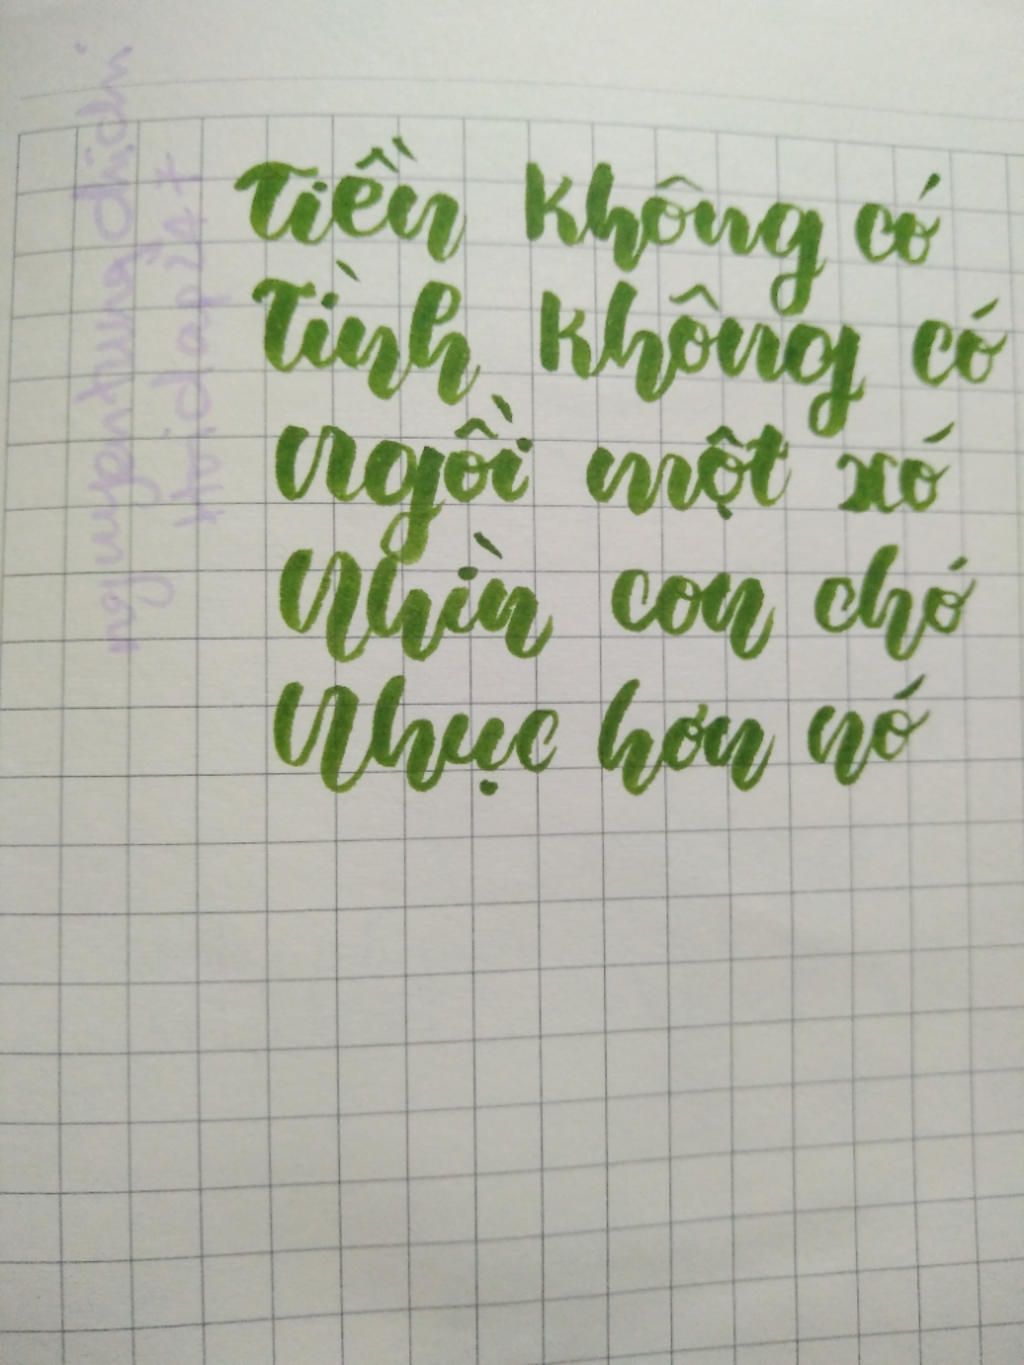 Tiền không có
Tình không có
Ngồi một xó
Nhìn con chó
Nhục hơn nó